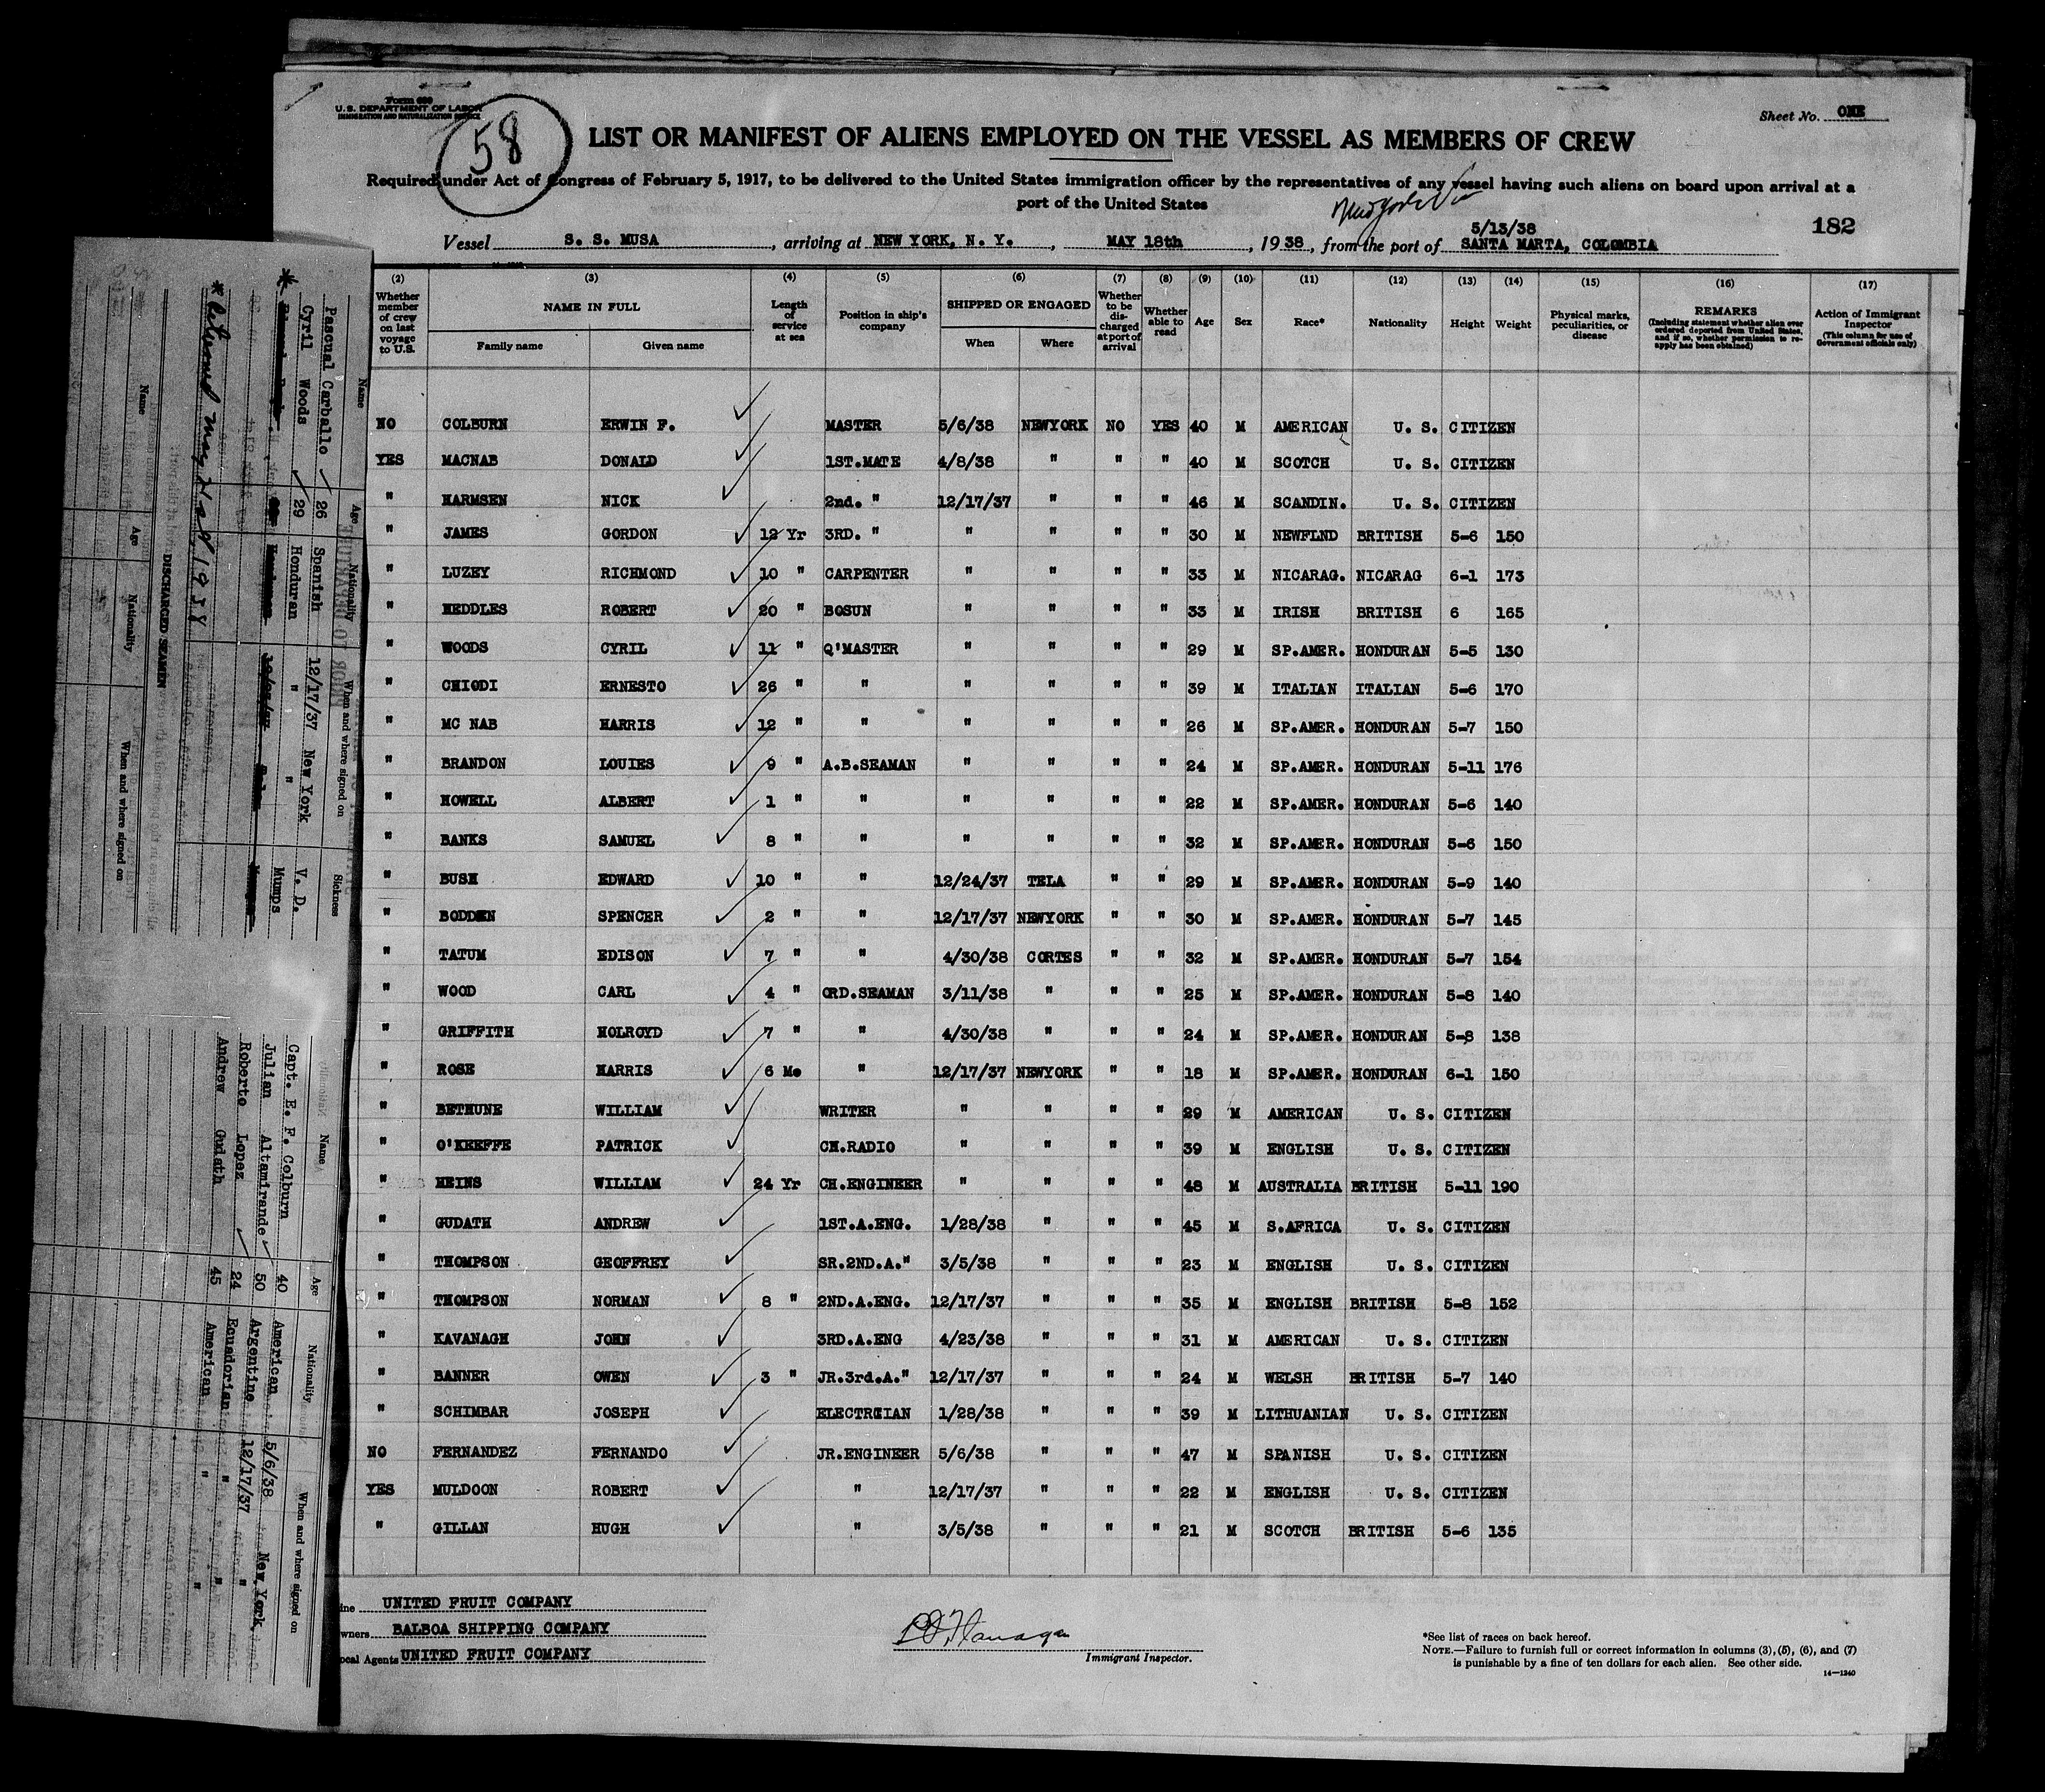 Form 680
U. S. DEPARTMENT OF LABOR
IMMIGRATION AND NATURALIZATION SERVICE
58
Sheet No. ONE
LIST OR MANIFEST OF ALIENS EMPLOYED ON THE VESSEL AS MEMBERS OF CREW
Required under Act of Congress of February 5, 1917, to be delivered to the United States immigration officer by the representatives of any vessel having such aliens on board upon arrival at a
port of the United States
New York
5/13/38
182
Vessel S. S. MUSA, arriving at NEW YORK, N. Y., MAY 18th, 1938, from the port of SANTA MARTA, COLOMBIA
(2) (3) (4) (5) (6) (7) (8) (9) (10) (11) (12) (13) (14) (15) (16) (17)
Whether member of crew on last voyage to U.S. NAME IN FULL Family name Given name Length of service at sea Position in ship's company SHIPPED OR ENGAGED When Where Whether to be discharged at port of arrival Whether able to read Age Sex Race* Nationality Height Weight Physical marks, peculiarities, or disease REMARKS (Including statement whether alien ever ordered deported from United States, and if so, whether permission to re-apply has been obtained) Action of Immigrant Inspector (This column for use of Government officials only)
NO COLBURN ERWIN F. MASTER 5/6/38 NEWYORK NO YES 40 M AMERICAN U. S. CITIZEN
YES MACNAB DONALD 1ST.MATE 4/8/38 " " " 40 M SCOTCH U. S. CITIZEN
" HARMSEN NICK 2nd. " 12/17/37 " " " 46 M SCANDIN. U. S. CITIZEN
" JAMES GORDON 12 Yr 3RD. " " " " " 30 M NEWFLND BRITISH 5-6 150
" LUZEY RICHMOND 10 " CARPENTER " " " " 33 M NICARAG. NICARAG 6-1 173
" HEDDLES ROBERT 20 " BOSUN " " " " 33 M IRISH BRITISH 6 165
" WOODS CYRIL 11 " Q'MASTER " " " " 29 M SP.AMER. HONDURAN 5-5 130
" CHIODI ERNESTO 26 " " " " " " 39 M ITALIAN ITALIAN 5-6 170
" MC NAB HARRIS 12 " " " " " " 26 M SP.AMER. HONDURAN 5-7 150
" BRANDON LOUIES 9 " A.B.SEAMAN " " " " 24 M SP.AMER. HONDURAN 5-11 176
" HOWELL ALBERT 1 " " " " " " 22 M SP.AMER. HONDURAN 5-6 140
" BANKS SAMUEL 8 " " " " " " 32 M SP.AMER. HONDURAN 5-6 150
" BUSH EDWARD 10 " " 12/24/37 TELA " " 29 M SP.AMER. HONDURAN 5-9 140
" BODDEN SPENCER 2 " " 12/17/37 NEWYORK " " 30 M SP.AMER. HONDURAN 5-7 145
" TATUM EDISON 7 " " 4/30/38 CORTES " " 32 M SP.AMER. HONDURAN 5-7 154
" WOOD CARL 4 " ORD.SEAMAN 3/11/38 " " " 25 M SP.AMER. HONDURAN 5-8 140
" GRIFFITH HOLROYD 7 " " 4/30/38 " " " 24 M SP.AMER. HONDURAN 5-8 138
" ROSE HARRIS 6 Mo " 12/17/37 NEWYORK " " 18 M SP.AMER. HONDURAN 6-1 150
" BETHUNE WILLIAM WRITER " " " " 29 M AMERICAN U. S. CITIZEN
" O'KEEFFE PATRICK CH.RADIO " " " " 39 M ENGLISH U. S. CITIZEN
" HEINS WILLIAM 24 Yr CH.ENGINEER " " " " 48 M AUSTRALIA BRITISH 5-11 190
" GUDATH ANDREW 1ST.A.ENG. 1/28/38 " " " 45 M S.AFRICA U. S. CITIZEN
" THOMPSON GEOFFREY SR.2ND.A." 3/5/38 " " " 23 M ENGLISH U. S. CITIZEN
" THOMPSON NORMAN 8 " 2ND.A.ENG. 12/17/37 " " " 35 M ENGLISH BRITISH 5-8 152
" KAVANAGH JOHN 3RD.A.ENG 4/23/38 " " " 31 M AMERICAN U. S. CITIZEN
" BANNER OWEN 3 " JR.3rd.A." 12/17/37 " " " 24 M WELSH BRITISH 5-7 140
" SCHIMBAR JOSEPH ELECTRCIAN 1/28/38 " " " 39 M LITHUANIAN U. S. CITIZEN
NO FERNANDEZ FERNANDO JR.ENGINEER 5/6/38 " " " 47 M SPANISH U. S. CITIZEN
YES MULDOON ROBERT " 12/17/37 " " " 22 M ENGLISH U. S. CITIZEN
" GILLAN HUGH " 3/5/38 " " " 21 M SCOTCH BRITISH 5-6 135
ine UNITED FRUIT COMPANY
wners BALBOA SHIPPING COMPANY
ocal Agents UNITED FRUIT COMPANY
Flanagan
Immigrant Inspector.
*See list of races on back hereof.
NOTE.—Failure to furnish full or correct information in columns (3), (5), (6), and (7)
is punishable by a fine of ten dollars for each alien. See other side.
14—1240
Name Age Nationality When and where signed on Sickness
Pascual Carballo 26 Spanish 12/17/37 New York V. D.
Cyril Woods 29 Honduran " " Mumps
* May 1938
DISCHARGED SEAMEN
Name Age Nationality When and where signed on
Name Age Nationality When and where signed on
Capt. E. F. Colburn 40 American 5/6/38 New York
Julian Altamirande 50 Argentine 12/17/37 "
Roberto Lopez 24 Ecuadorian " "
Andrew Gudath 45 American " "